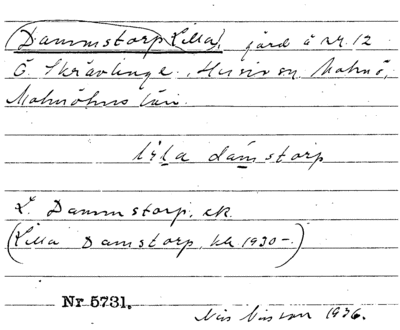 Dammstorp (Lilla), gård å nr. 12
Ö. Skrävlinge. Husie sn, Malmö,
Malmöhus län.
lìla dámstorp
L. Dammstorp, ek.
(Lilla Damstorp, kk 1930-.)
Nr 5731.
Nils Nilsson 1936.